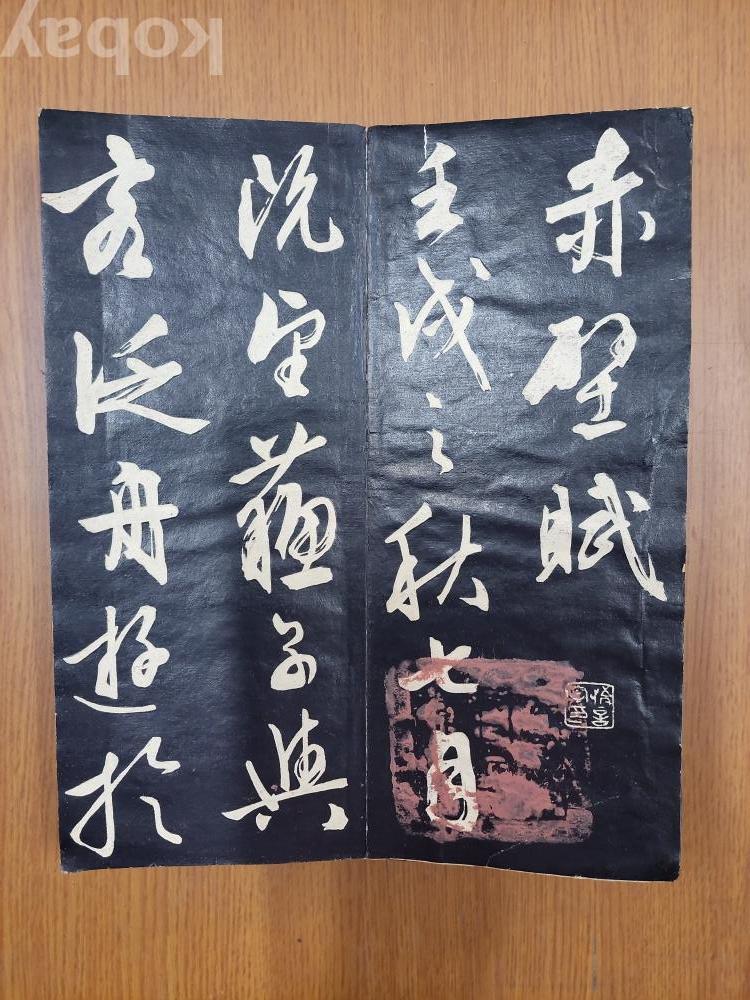 赤壁賦
壬戌之秋七月
既望蘇子與
客泛舟遊於
kobay